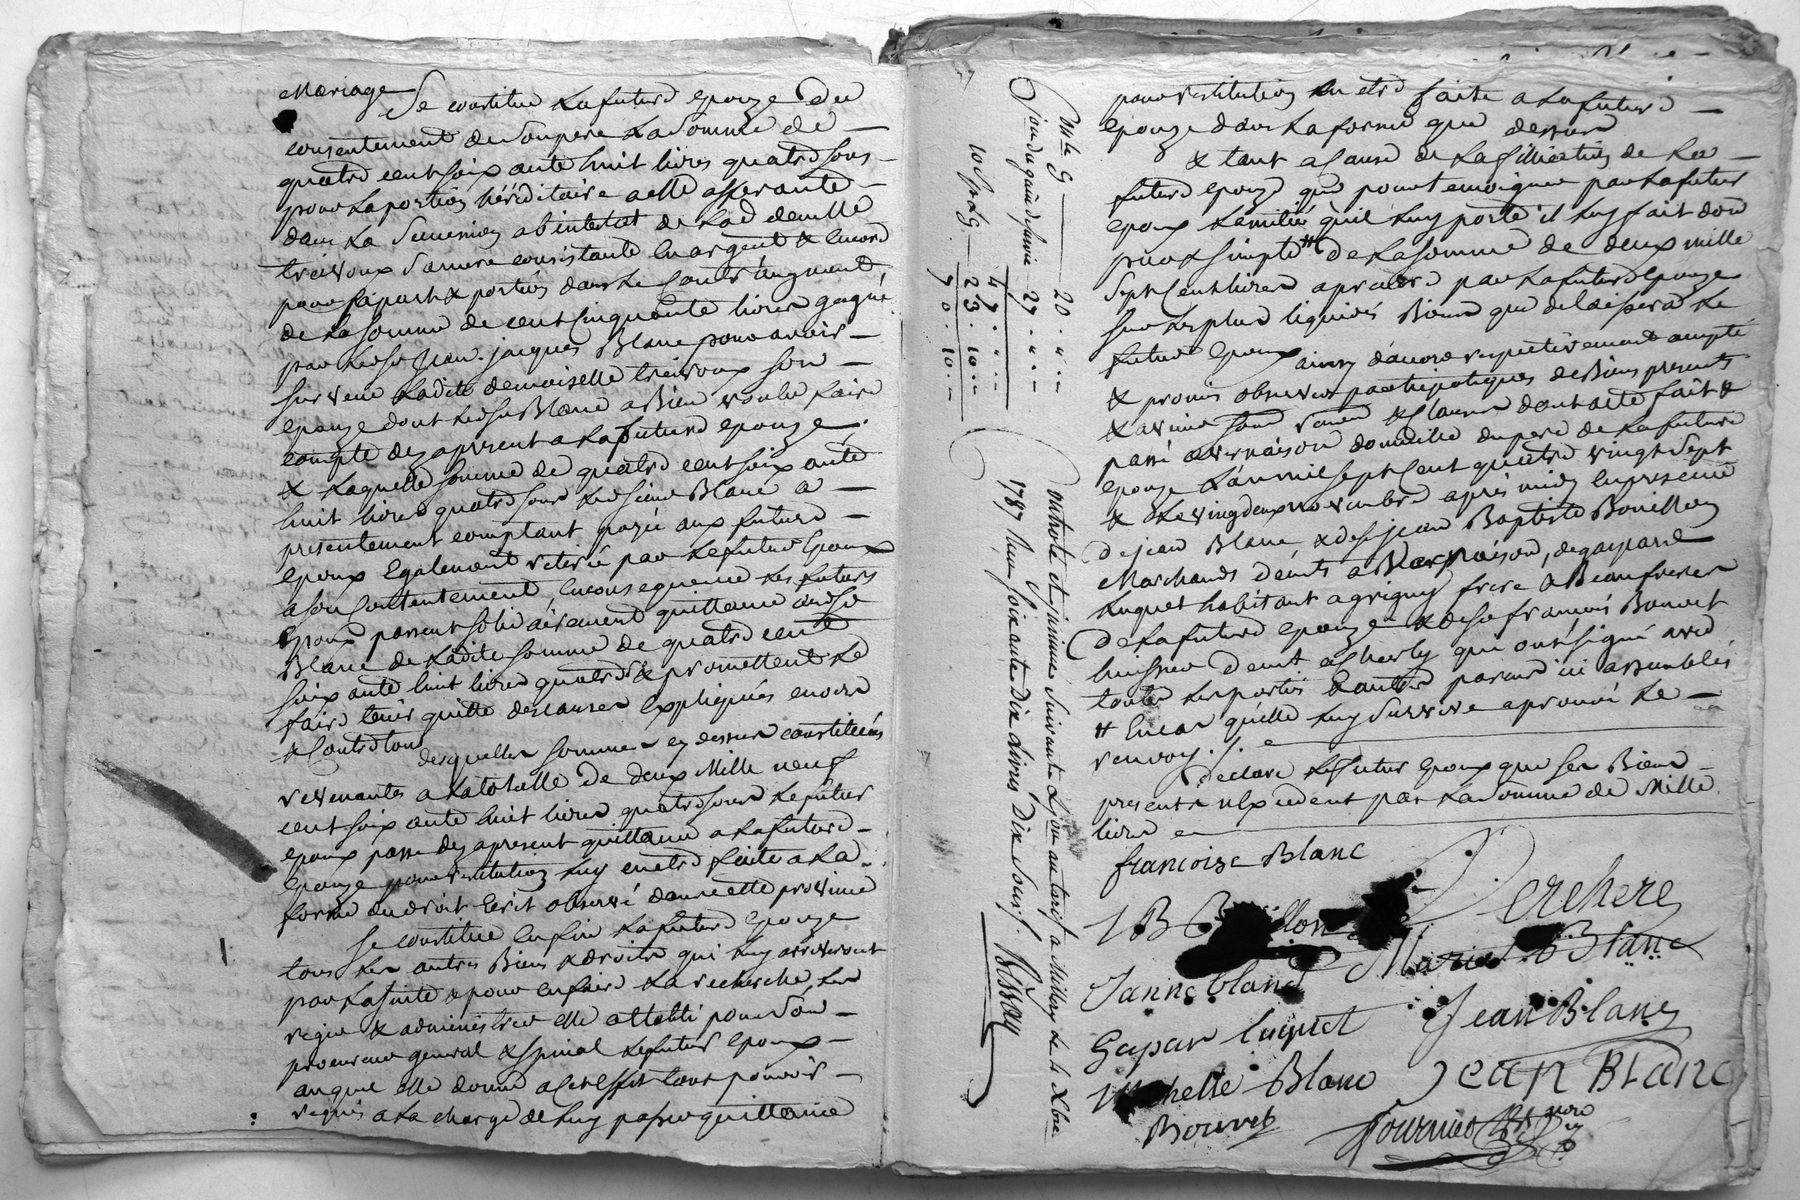 Mariage
Se constitue la future epouze du
consentement de son pere la somme de
quatre cent soix ante huit livres quatre sous
pour la portion héréditaire a elle afferante
dans la succession ab intestat de lad demlle
trievoux sa mere consistante en argent & encore
pour sa part & portion dans le contr'augment
de la somme de cent cinquante livres gagné
par led sr Jean-jacques Blanc pour avoir
survecu ladite demoiselle trievoux son
epouze dont led sr Blanc a Bien voulu faire
compte dez apresent a la future epouze
& laquelle somme de quatre cent soix ante
huit livres quatre sous led sieur Blanc a
presentement comptant payée aux futurs
epoux Egalement retirée par le futur Epoux
a son Contentement, en consequence les futurs
Epoux passent solidairement quittance aud sr
Blanc de ladite somme de quatre cent
soix ante huit livres quatre s & promettent le
faire tenir quitte des causes Expliquées envers
& Contre tous
desquelles sommes cy dessus constituées
revenantes a la totalle De deux Mille neuf
cent soix ante huit livres quatre sous le futur
epoux passe dez apresent quittance a la future
Epouze pour restitution luy en etre faite a la
forme du droit Ecrit observé dans cette province
Se constitue Enfin la future Epouze
tous ses autres Biens & droits qui luy arriveront
par la suite & pour en faire la recherche, les
regir & administrer elle a etabli pour son
procureur general & special le futur epoux
auquel elle donne a cet effet tout pouvoir
requis a la charge de luy passer quittance
pour restitution en etre faite a la future
epouze dans la forme que dessus
& tant a cause de la celebration de la
future epouze que pour temoigner par le futur
epoux l'amitié qu'il luy porte il luy fait don
pur & simple # de la somme de deux mille
sept Cent livres a prendre par la future epouze
sur les plus liquides Biens que delaissera le
futur epoux ainsy d'accord respectivement accepté
& promis observer par les parties de Biens presents
& avenir sous peine & Clauses dont acte fait &
passé a vernaison domicile du pere de la future
epouze L'an mil sept Cent quatre vingt sept
& le vingt deux novembre après midy en presence
de jean Blanc & de sr jean Baptiste Bouillon
Marchands demts a Vernaison, de gaspard
Luquet habitant a grigny frere & Beaufreres
De la future epouze & de sr françois Bouvet
huissier demt a Charly qui ont signé avec
toutes les parties & autres parens ici assemblés
# En cas qu'elle luy survive aprouvé le
renvoy ./.
Declare le futur epoux que ses Biens
presents n'excedent pas la somme de Mille
livres
francoise Blanc
Perchere
JB Bouillon
Marie B Blanc
Janne blanc
Gaspar luquet
Jean Blanc
Michelle Blanc
Jean Blanc
Bouvet
fournier
Mle G — 20
Don du gain de survie 27
47
10 s pr lG 23 . 10
70 . 10
Controlé et insinué suivant le Con au tarif a Millery le 4 Xbre
1787 Reçu soixante Dix Livres Dix Sous ./. Bissay